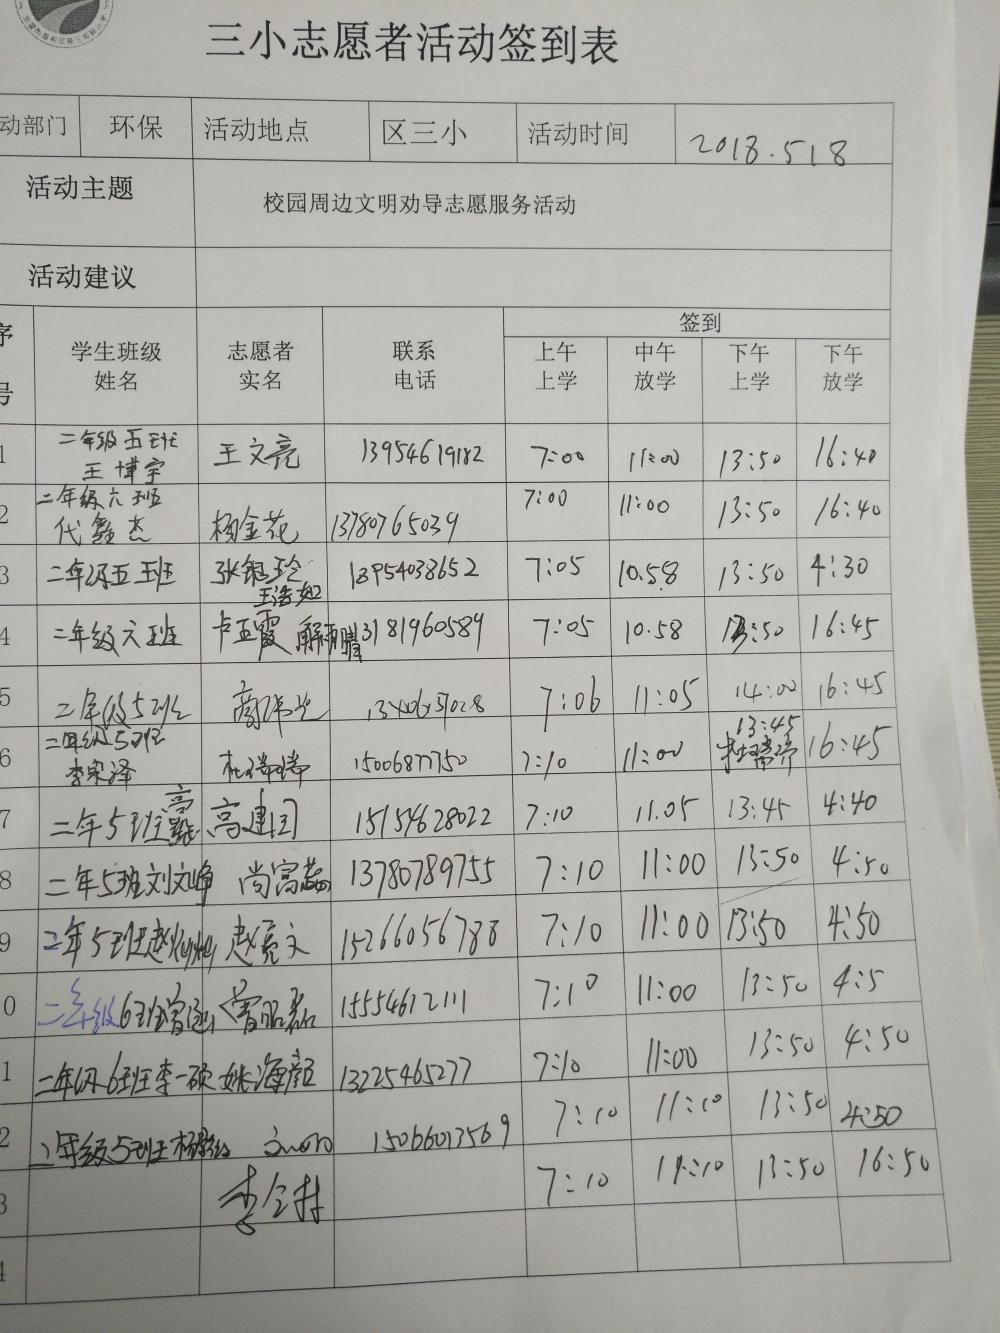 三小志愿者活动签到表
动部门 环保 活动地点 区三小 活动时间 2018.518
活动主题 校园周边文明劝导志愿服务活动
活动建议
序号 学生班级姓名 志愿者实名 联系电话 签到
上午上学 中午放学 下午上学 下午放学
1 二年级五班 王博宇 王文亮 13954619182 7:00 11:00 13:50 16:40
2 二年级六班 代鑫杰 杨金花 13780765039 7:00 11:00 13:50 16:40
3 二年级五班 张银玲 王浩 13954038652 7:05 10.58 13:50 4:30
4 二年级六班 卢亚霞 解雨晴 13181960589 7:05 10.58 13:50 16:45
5 二年级5班 7:06 11:05 14:00 16:45
6 二年级5班 李宋泽 杜瑞瑞 15006877750 7:10 11:00 13:45 16:45
7 二年5班 高 高建国 15154628022 7:10 11.05 13:45 4:40
8 二年5班刘文峰 尚富 13780789755 7:10 11:00 13:50 4:50
9 二年5班赵 赵亮文 15266056788 7:10 11:00 13:50 4:50
0 二年级6班 曾 15554612111 7:10 11:00 13:50 4:5
1 二年级6班李一硕 姚海颜 13225465277 7:10 11:00 13:50 4:50
2 二年级5班杨 15066013569 7:10 11:10 13:50 4:50
3 7:10 11:10 13:50 16:50
4